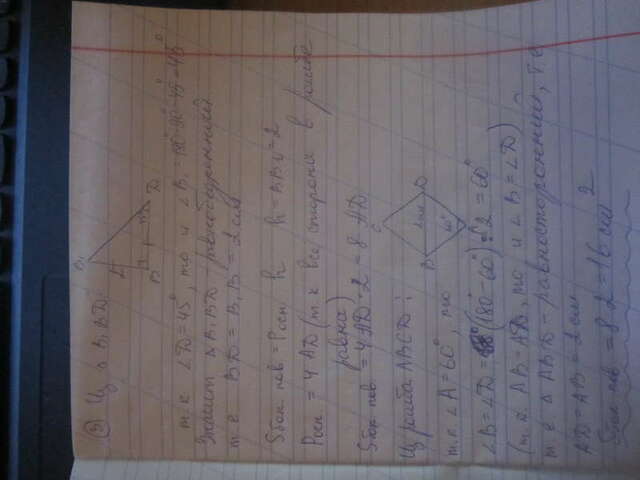 ③ Из △ B₁BD:
B₁
2
B
45°
D
т.к ∠D=45°, то и ∠B₁=180°-90°-45°=45°
Значит △B₁BD - равнобедренный
т.е BD = B₁B = 2см
Sбок пов = Pосн · h h = BB₁ = 2
Pосн = 4 AD (т.к все стороны в ромбе
равны)
Sбок пов = 4AD·2 = 8 AD
Из ромба ABCD:
C
B
2см
D
60°
т.к ∠A=60°, то
∠B=∠D= (180°-60°):2 = 60°
(т.к. AB=AD, то и ∠B=∠D)
т.е. △ABD - равносторонний, т.е
AD=AB=2см
Sбок пов = 8·2=16 см²